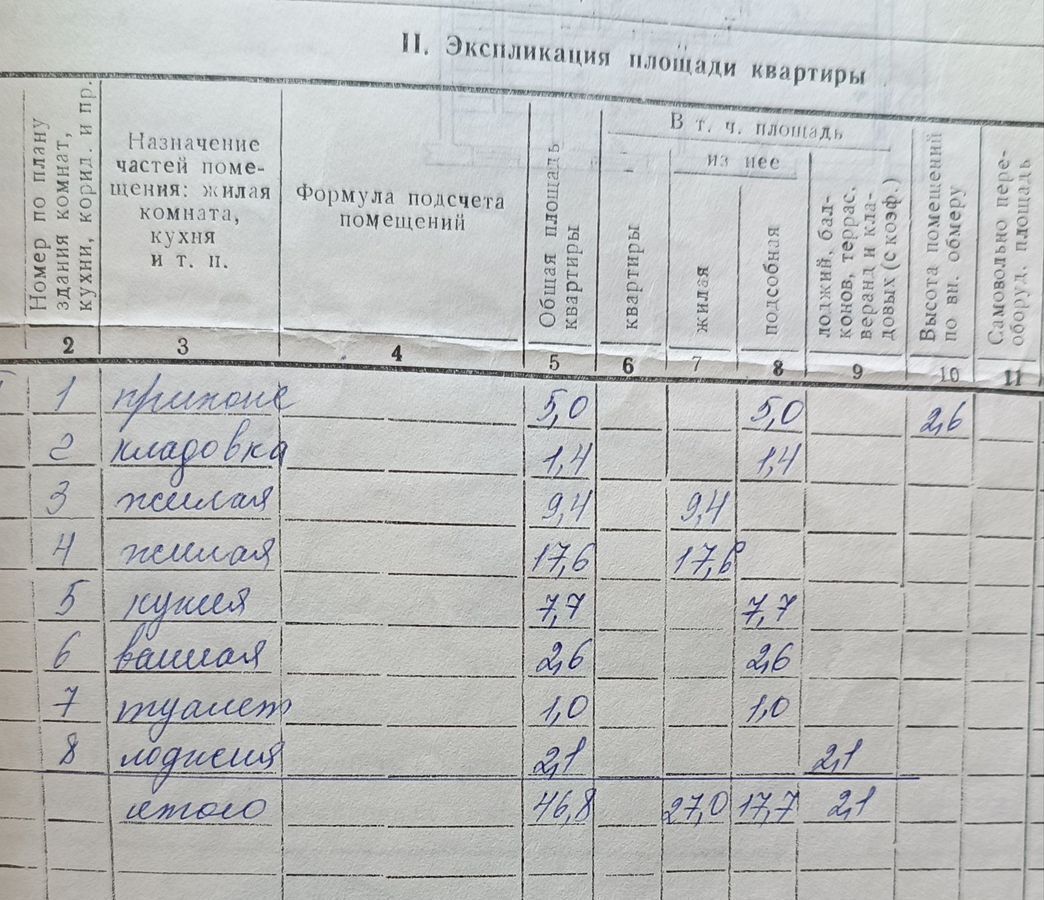 II. Экспликация площади квартиры
Номер по плану здания комнат, кухни, корид. и пр.
Назначение частей поме-
щения: жилая
комната,
кухня
и т. п.
Формула подсчета
помещений
Общая площадь
квартиры
В т. ч. площадь
из нее
квартиры
жилая
подсобная
лоджий, бал-
конов, террас,
веранд и кла-
довых (с коэф.)
Высота помещений
по вн. обмеру
Самовольно пере-
оборуд. площадь
2 3 4 5 6 7 8 9 10 11
1 прихожс 5,0 5,0 2,6
2 кладовка 1,4 1,4
3 жилая 9,4 9,4
4 жилая 17,6 17,6
5 кухня 7,7 7,7
6 ванная 2,6 2,6
7 туалет 1,0 1,0
8 лоджия 2,1 2,1
итого 46,8 27,0 17,7 2,1